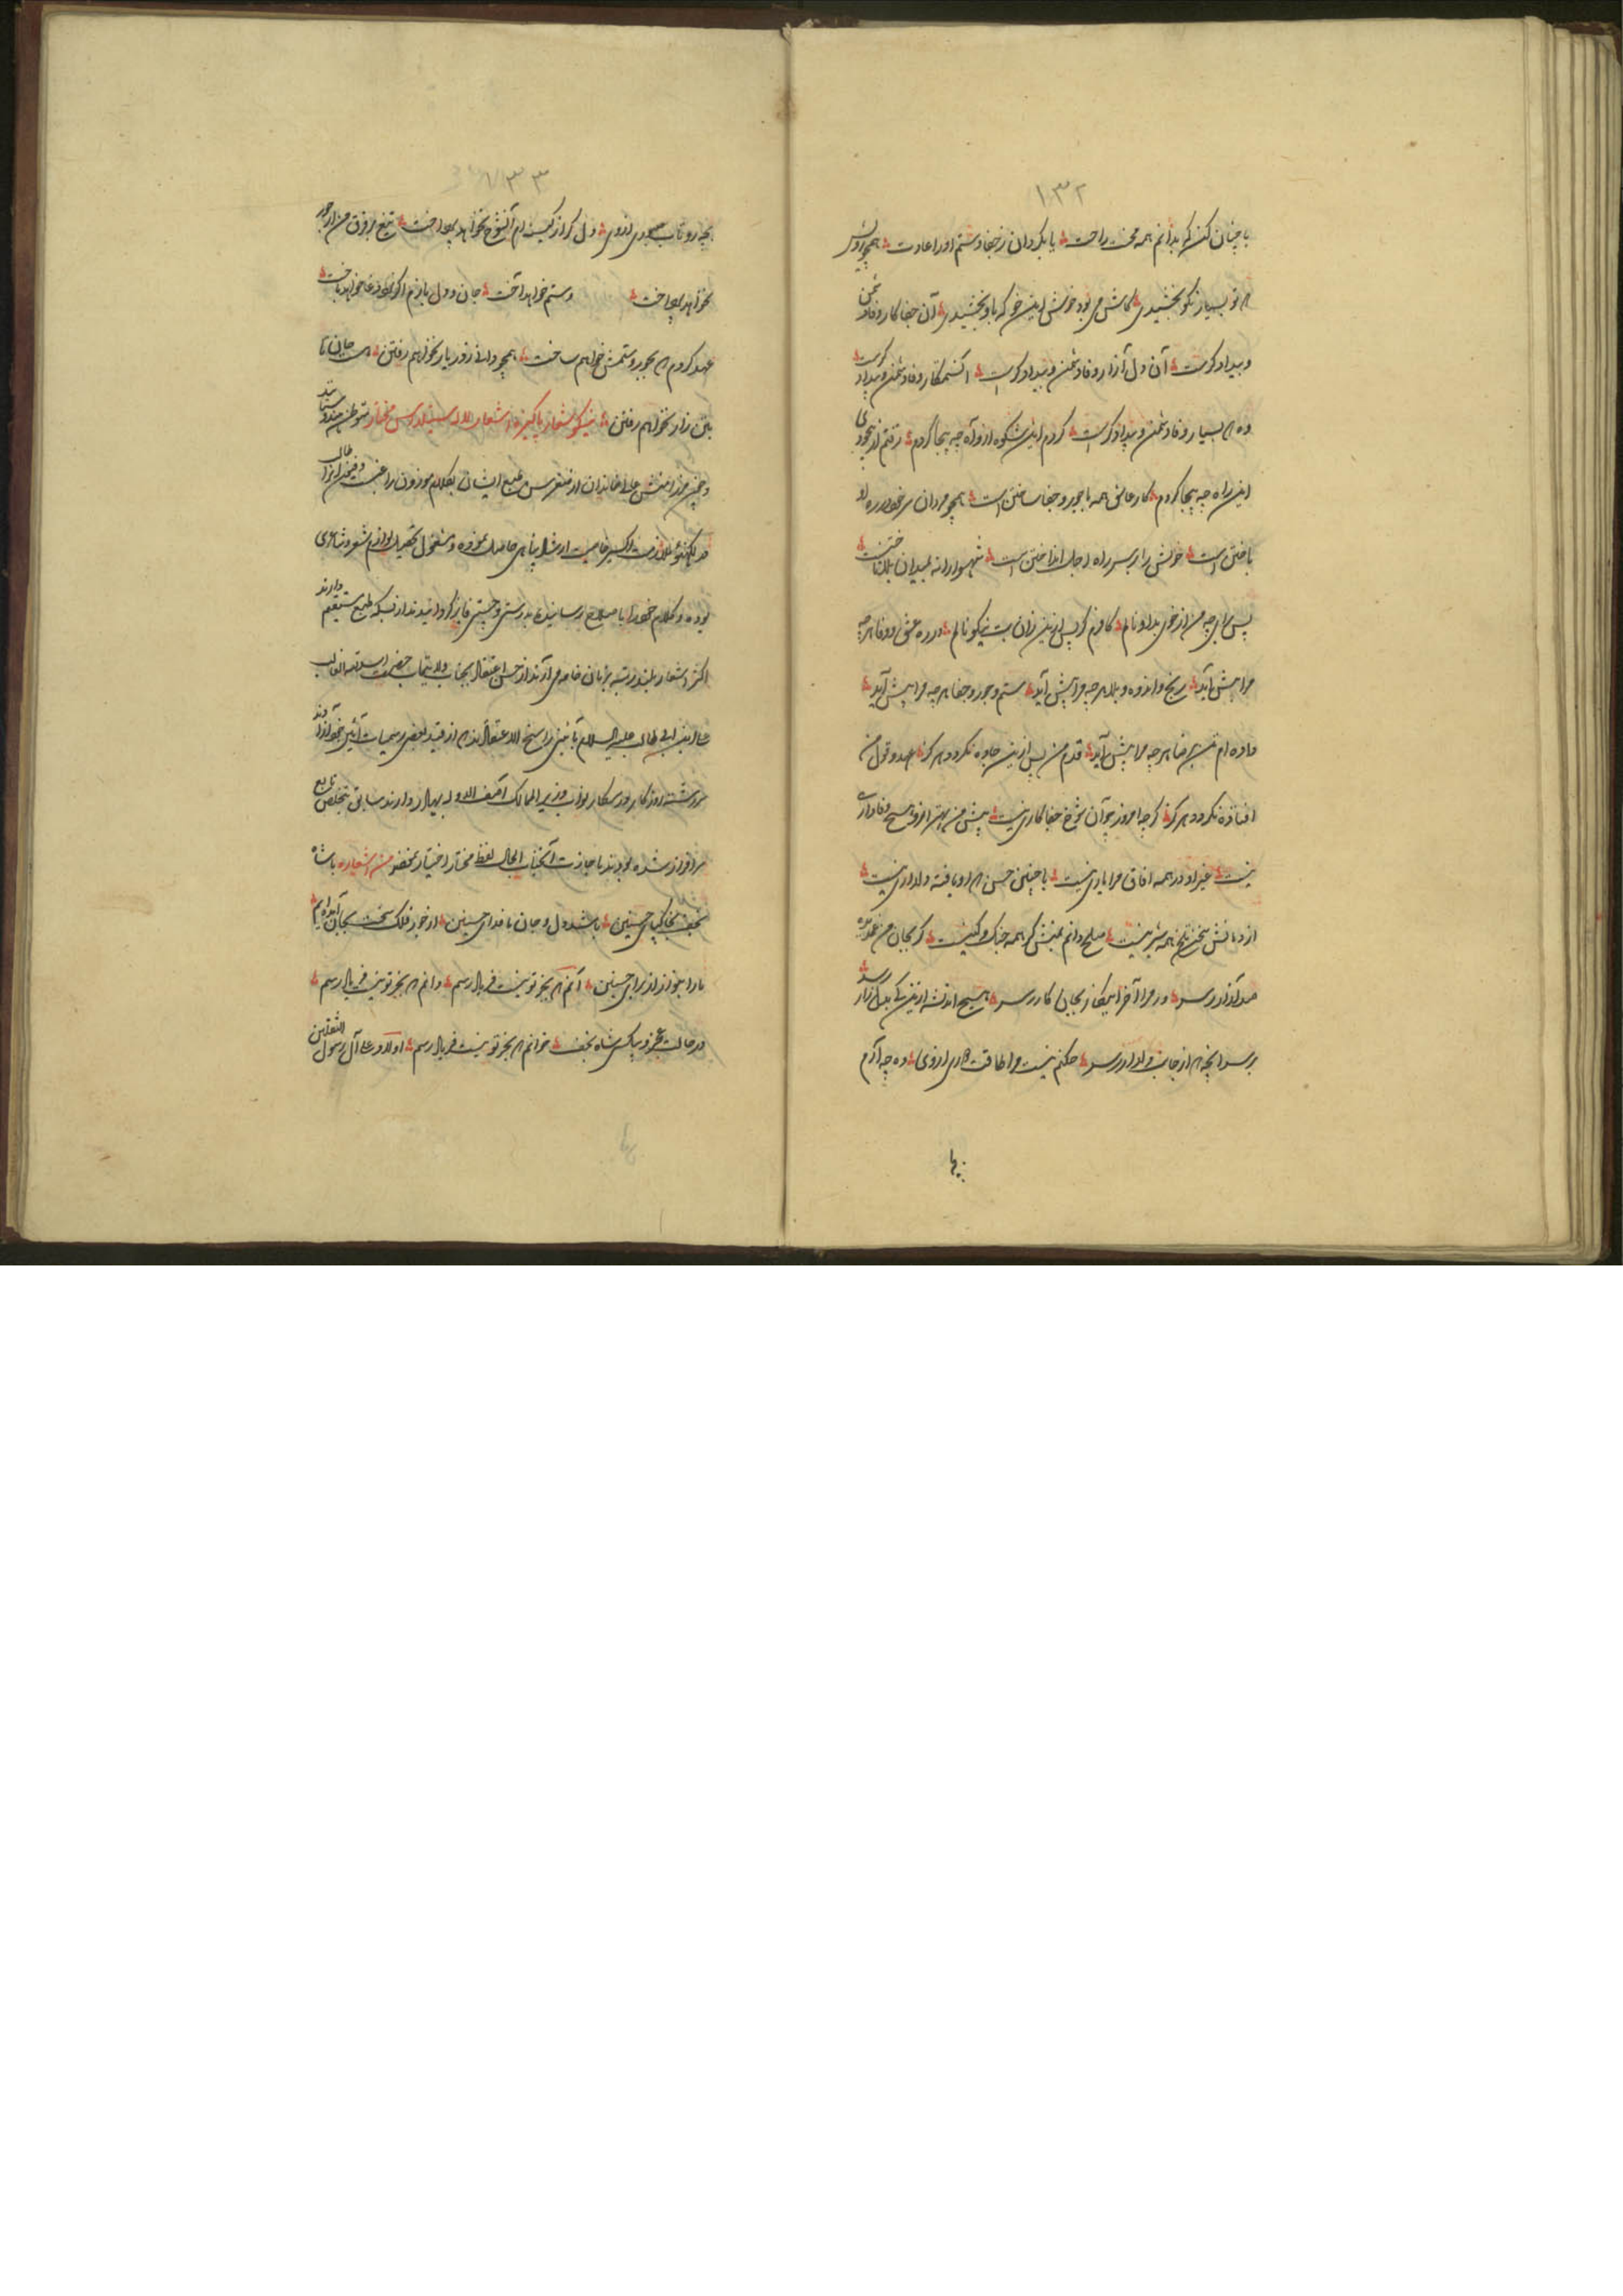 ۱۳۲
یا چنان کن که بدانم همه محنت راحت یا بگردان ز جفا و ستم او را عادت همچو رویش
که تو بسیار نکو بخشیدی کاش می بود خوش این خو که باو بخشیدی آن جفا کار وفا دشمن
و بیدادگرست آن دل آزار وفا دشمن و بیدادگرست آن ستمکار وفا دشمن و بیدادگرست
وه که بسیار وفا دشمن و بیدادگرست کردم این شکوه ازو آه چه بیجا کردم رفتم از بیخودی
این راه چه بیجا کردم کار عاشق همه با جور و جفا ساختن است همچو مردان سر خود در ره او
باختن است خویش را بر سر راه اجل انداختن است شهسوارانه بمیدان بلا تاختن است
پس برای چه من از خوی بد او نالم کافرم گر پس ازین زان بت نیکو نالم در ره عشق و وفا هر چه
مرا پیش آید رنج و اندوه و بلا هر چه مرا پیش آید ستم و جور و جفا هر چه مرا پیش آید
داده ام تن برضا هر چه مرا پیش آید قدم من پس ازین جاده نگردد هرگز عهد و قول من
افتاده نگردد هرگز گرچه امروز چو آن شوخ جفا کاری نیست پیش من بهتر ازو هیچ وفاداری
نیست غیر او در همه آفاق مرا یاری نیست با چنین حسن که او یافته دلداری نیست
از دهانش سخن تلخ همه شیرینست صلح دانم بمنش گر همه جنگ و کینست گر بجان من غمدیده
صد آزار رسد ور مرا آخر ازین کار بجان کار رسد هیچ اندیشه ازین نیک بدل زار رسد
برسد آنچه که از جانب دلدار رسد چکنم نیست مرا طاقت دوری از وی وه چه آرم

۱۳۳
بچه رو تاب صبوری از وی دل گر از کینه ام آن شوخ نخواهد پرداخت تیغ بر فرق من از جور
نخواهد پرداخت و ستم خواهد آخت جان و دل بازم اگر او بدغا خواهد باخت
عهد کردم که بجور و ستمش خواهم ساخت همچو دل از در یار نخواهم رفتن هست جان تا
بتن زار نخواهم رفتن نیکو شعار پاکیزه اشعار لاله سیتلداس مختار متوطن هندوستان
در لکهنو ملازمت اکسیر خاصیت ارشاد پناهی حاصل نموده و مشغول تکمیل لوازم شعر و شاعری
بوده و کلام خود را باصلاح رسانیده بدرستی و چستی فایز گردانیدند از بسکه طبع مستقیم دارند
اکثر اشعار بلند رتبه بزبان خامه می آرند از حسن اعتقاد بجناب ولایتمآب حضرت اسد الله الغالب
علی ابن ابی طالب علیه السلام
سررشته روزگار در سرکار نواب وزیر الممالک آصف الدوله بهادر دارند سابق بتخلص تابع
سرافراز شده بودند باجازت آنجناب الحال لفظ مختار اختیار نمودند من اشعاره یا شاه
نجف بخاکپای حسنین باشد دل و جان ما فدای حسنین از جور فلک سخت بجان آمده ایم
ما را بنواز از برای حسنین آنم که بجز تو نیست فریادرسم دانم که بجز تو نیست فریادرسم
در حالت عجز و بیکسی شاه نجف خوانم که بجز تو نیست فریادرسم اولاد علی آل رسول الثقلین